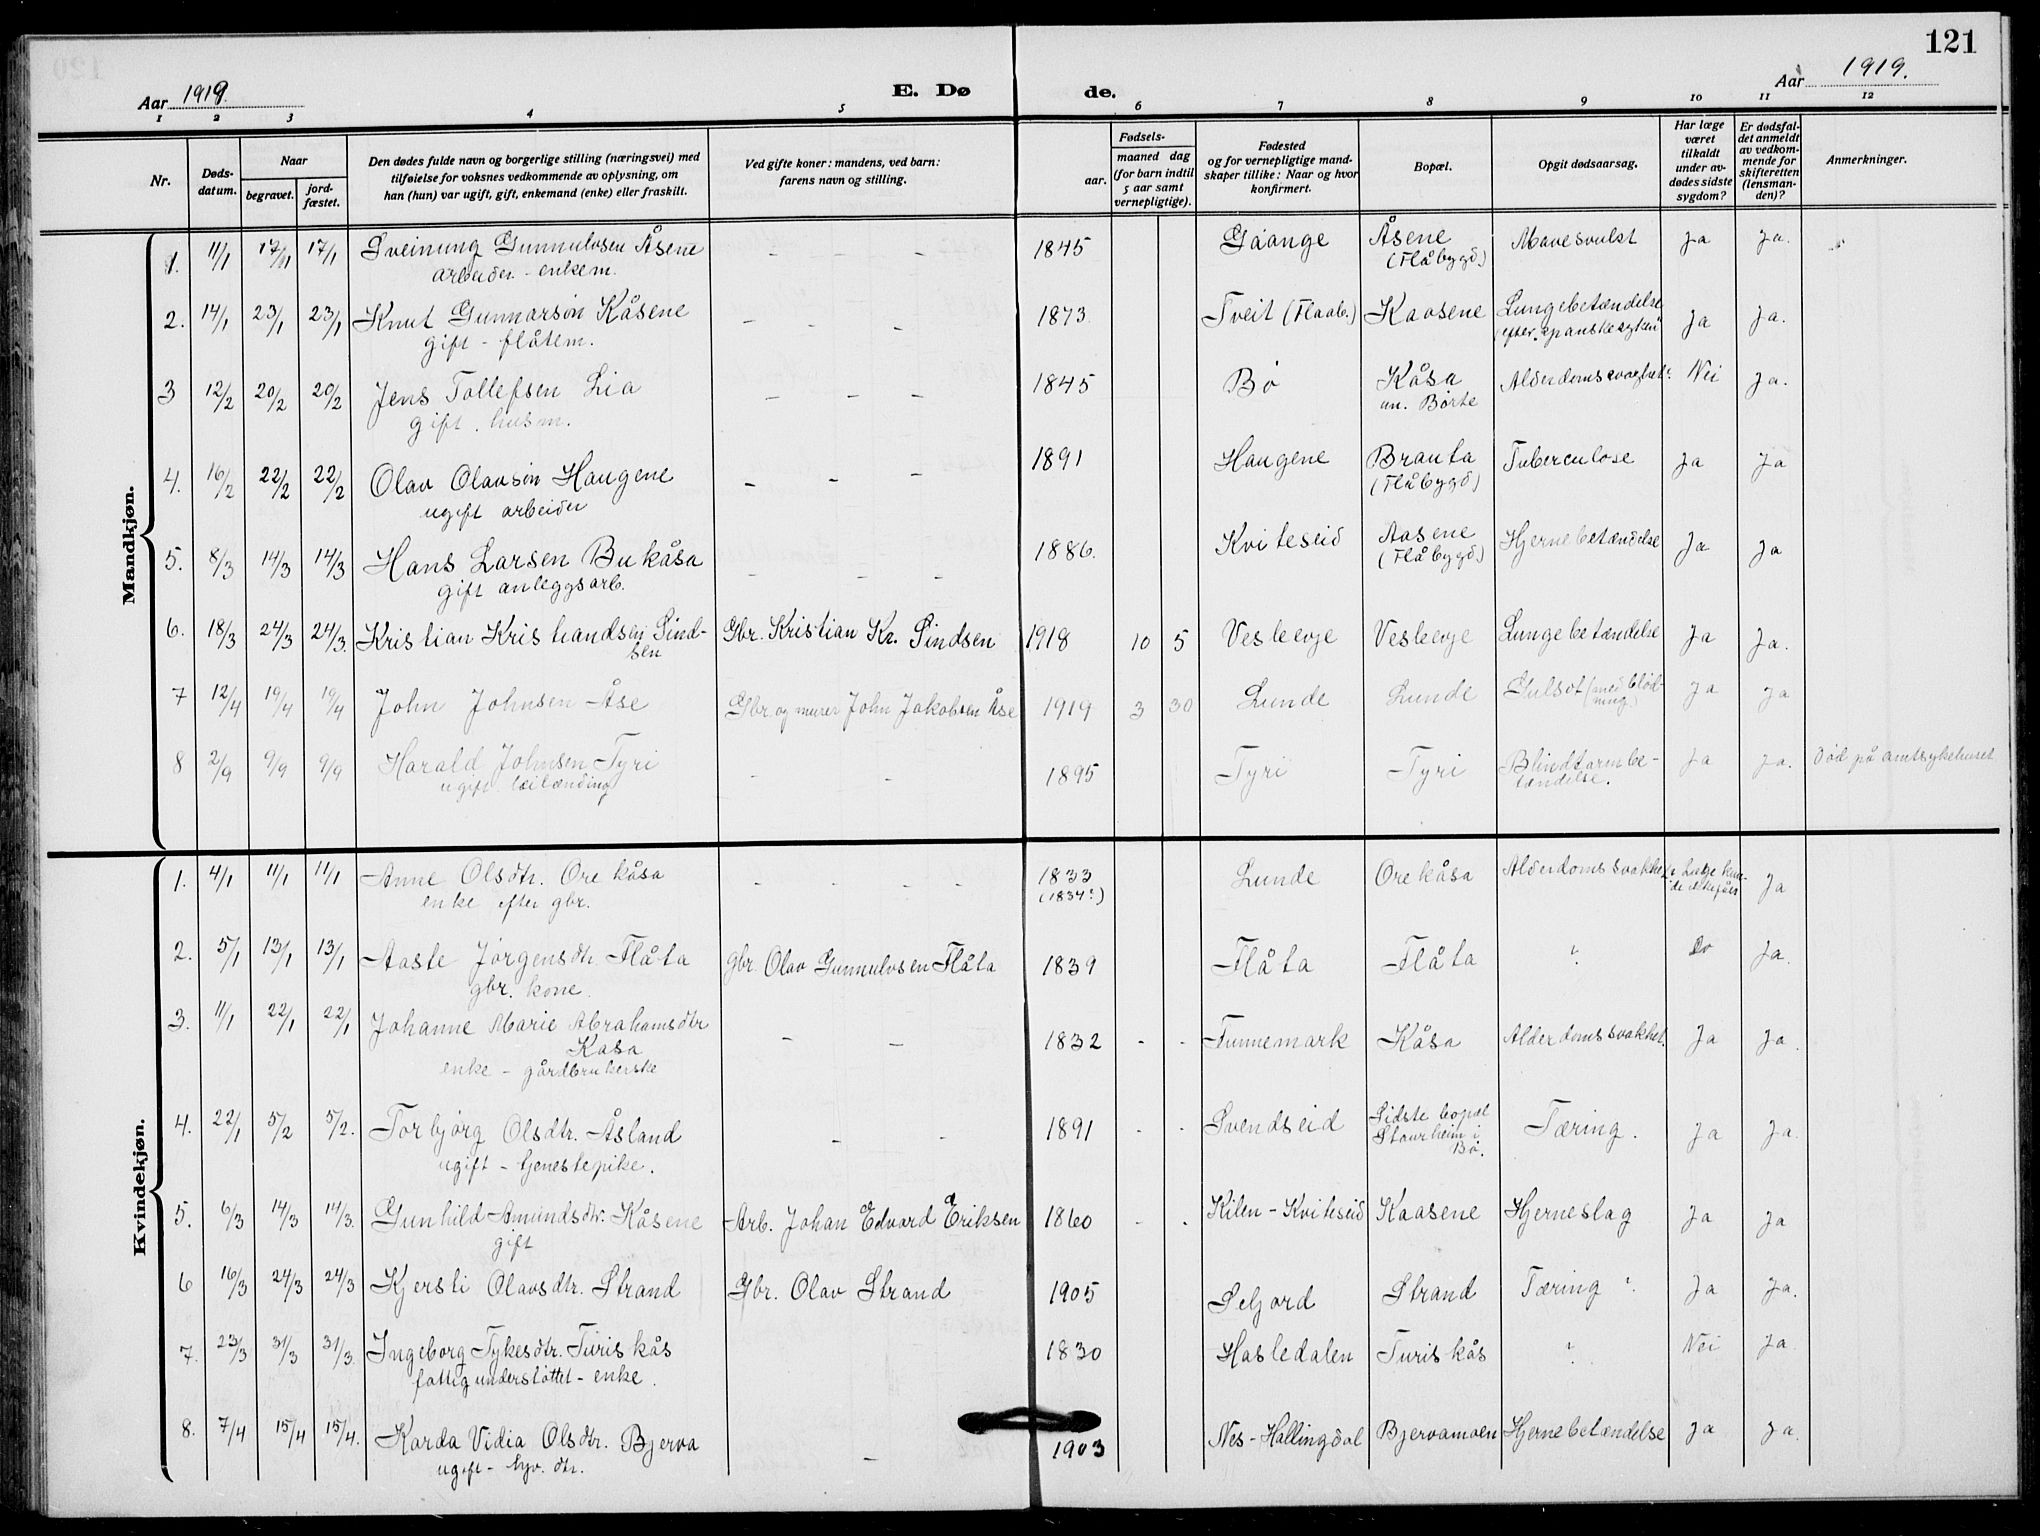 121
Aar 1919.
E. Døde.
Aar 1919.
1 2 3 4 5 6 7 8 9 10 11 12
Nr.
Døds-
datum.
Naar
begravet.
jord-
fæstet.
Den dødes fulde navn og borgerlige stilling (næringsvei) med
tilføielse for voksnes vedkommende av oplysning, om
han (hun) var ugift, gift, enkemand (enke) eller fraskilt.
Ved gifte koner: mandens, ved barn:
farens navn og stilling.
Fødsels-
aar.
maaned dag
(for barn indtil
5 aar samt
vernepligtige).
Fødested
og for vernepligtige mand-
skaper tillike: Naar og hvor
konfirmert.
Bopæl.
Opgit dødsaarsag.
Har læge
været
tilkaldt
under av-
dødes sidste
sygdom?
Er dødsfal-
det anmeldt
av vedkom-
mende for
skifteretten
(lensman-
den)?
Anmerkninger.
Mandkjøn.
1. 11/1 17/1 17/1 Sveinung Gunnulvsen Åsene - - - - 1845 Åsene Mavesvulst Ja Ja.
arbeider - enkem. (Flåbygd)
2. 14/1 23/1 23/1 Knut Gunnarson Kåsene - - - 1873 Tveit (Flaab.) Kaasene Lungebetændelse Ja Ja.
gift - flåtem. (efter „spanskesyken”
3 12/2 20/2 20/2 Jens Tollefsen Lia - - - 1845 Bø Kåsa Alderdomssvakhet Nei Ja.
gift. husm. un. Børte
4. 16/2 22/2 22/2 Olav Olavson Haugene - - - 1891 Haugene Brauta Tuberculose Ja Ja
ugift arbeider (Flåbygd)
5. 8/3 14/3 14/3 Hans Larsen Bukåsa - - - 1886. Kviteseid Aasene Hjernebetændelse Ja Ja
gift anleggsarb. (Flåbygd)
6. 18/3 24/3 24/3. Kristian Kristiandsen Sind- Gbr. Kristian Kr. Sindsen 1918 10 5 Vesleevje Vesleevje Lungebetændelse Ja Ja.
sen
7 12/4 19/4 19/4 John Johnsen Åse Gbr og murer John Jakobsen Åse 1919 3 30 Lunde Lunde Gulsot (med blød- Ja Ja
ning)
8 2/9 9/9 9/9 Harald Johnsen Tyri - - 1895 Tyri Tyri Blindtarmbe- Ja Ja. Død på amtsykehuset
ugift leilænding tændelse.
Kvindekjøn.
1. 4/1 11/1 11/1 Anne Olsdtr. Orekåsa - - - - 1833 Lunde Orekåsa Alderdomssvakhet Læge kun- Ja
enke efter gbr. (1834?) de ikke fåes
2. 5/1 13/1 13/1 Aaste Jørgensdtr. Flåta gbr. Olav Gunnulvsen Flåta 1839 Flåta Flåta " Do Ja.
gbr. kone.
3. 11/1 22/1 22/1 Johanne Marie Abrahamsdtr - - 1832 - - Tunnemark Kåsa Alderdomssvakhet. Ja Ja.
Kasa
enke - gårdbrukerske
4. 22/1 5/2 5/2. Torbjørg Olsdtr. Åsland - - 1891 - - Svendseid Sidste bopæl Tæring. Ja Ja.
ugift - tjenestepike. Staurheim i
Bø.
5. 6/3 14/3 14/3. Gunhild Amundsdtr. Kåsene Arb. Johan Edvard Eriksen 1860 - - Kilen - Kviteseid Kaasene Hjerneslag Ja Ja
gift
6 16/3 24/3 24/3 Kjersti Olavsdtr. Strand Gbr. Olav Strand 1905 Seljord Strand Tæring " Ja Ja.
7. 23/3 31/3 31/3. Ingeborg Tykesdtr. Turiskås 1830 Hasledalen Turiskås " Nei Ja.
fattigunderstøttet - enke.
8. 7/4 15/4 15/4. Karda Vidia Olsdtr. Bjerva - 1903 Nes - Hallingdal Bjervamoen Hjernebetændelse Ja Ja.
ugift - dtr.